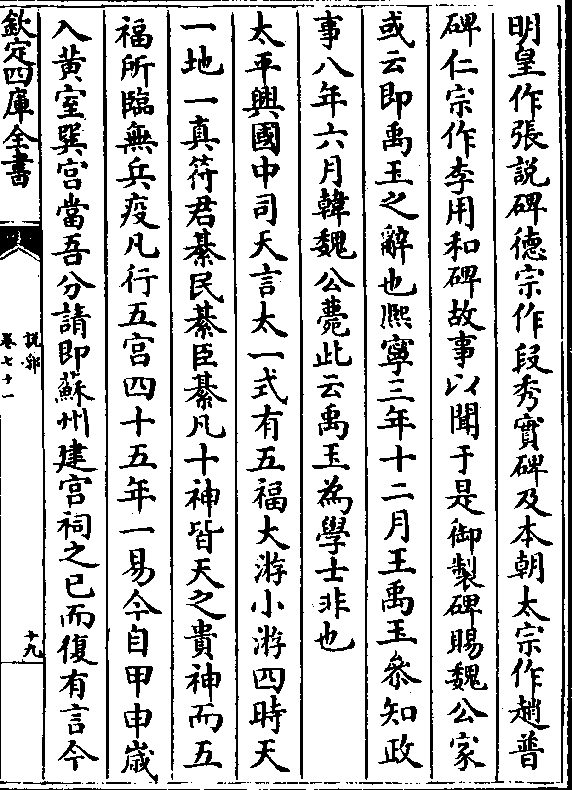 明皇作張説碑德宗作段秀實碑及本朝太宗作趙普
碑仁宗作李用和碑故事以聞于是御製碑賜魏公家
或云即禹玉之辭也熈寧三年十二月王禹玉叅知政
事八年六月韓魏公薨此云禹玉為學士非也
太平興國中司天言太一式有五福大游小游四時天
一地一真符君綦民綦臣綦凡十神皆天之貴神而五
福所臨無兵疫凡行五宫四十五年一易今自甲申嵗
入黄室巽宫當吾分請即蘇州建宫祠之已而復有言今
欽定四庫全書
説郛
卷七十一
十九